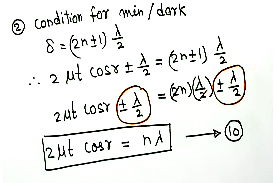 ② condition for min/dark
δ = (2n±1) λ/2
∴ 2 μt cosr ± λ/2 = (2n±1) λ/2
2μt cosr ± λ/2 = (2n)(λ/2) ± λ/2
2μt cosr = nλ → ⑩